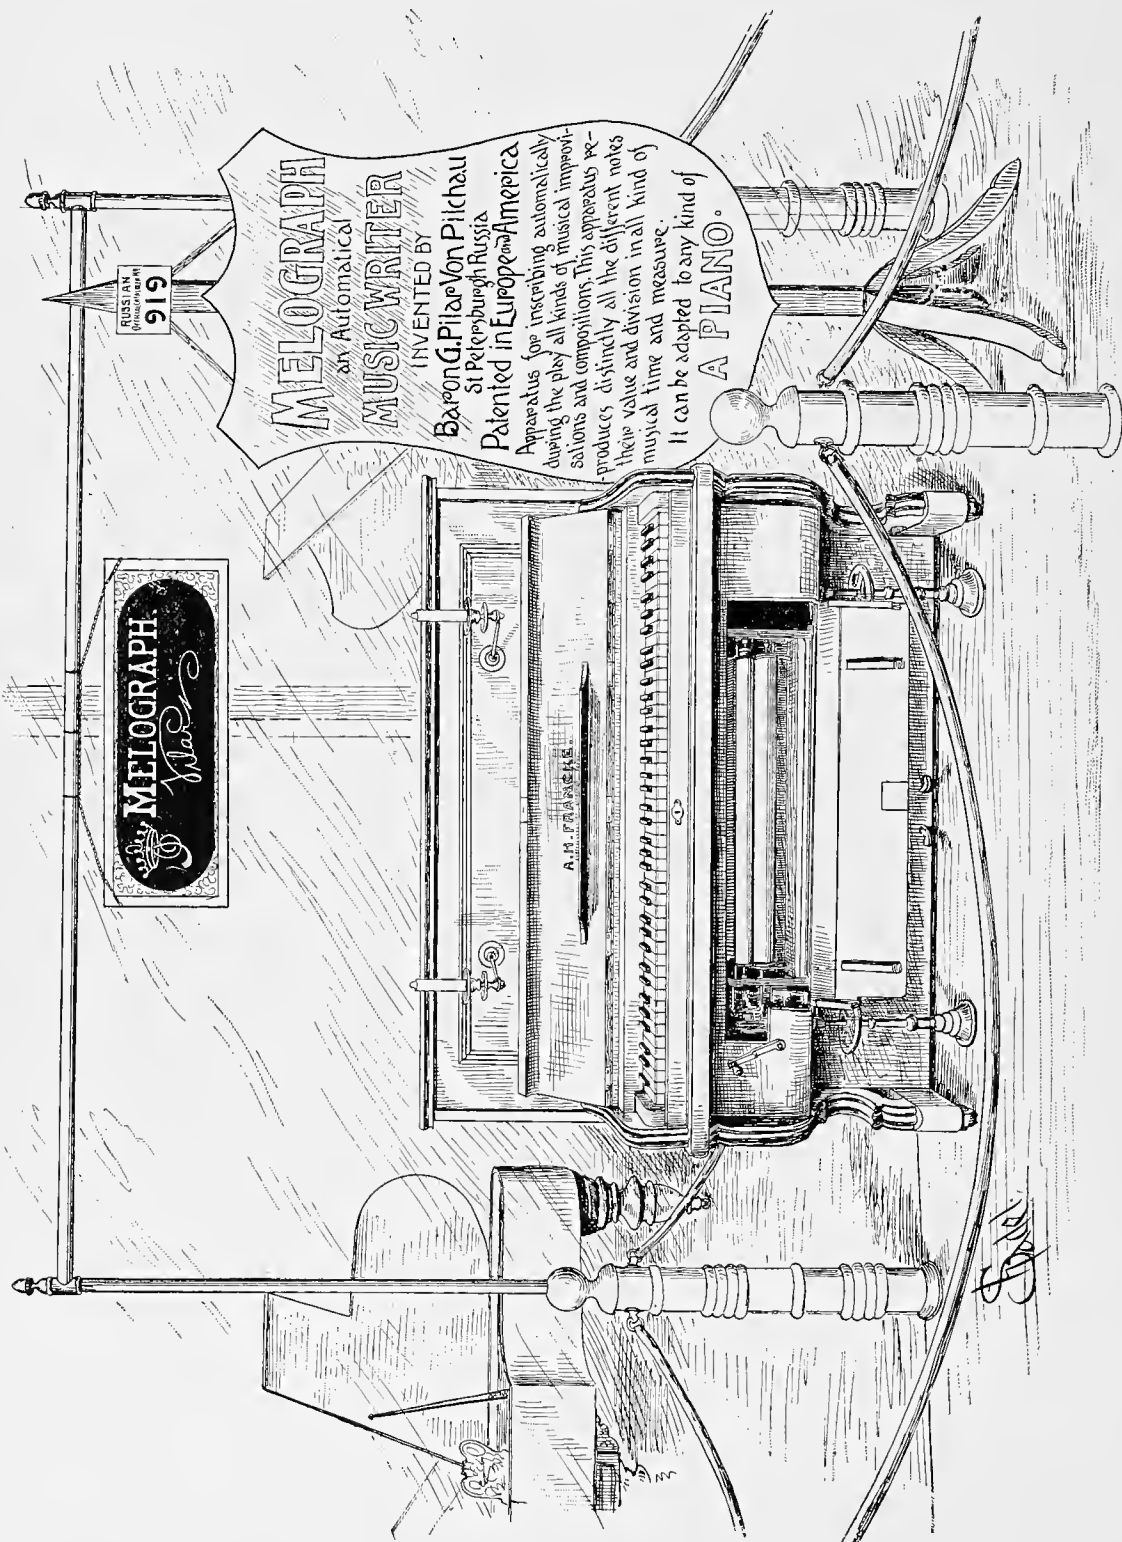 MELOGRAPH.
Pilar
RUSSIAN
919
MELOGRAPH
an Automatical
MUSIC WRITER
INVENTED BY
Baron G. Pilar Von Pilchau
St Petersburgh Russia
Patented in Europe and America
Apparatus for inscribing automatically
during the play all kinds of musical improvi-
sations and compositions. This apparatus re-
produces distinctly all the different notes
their value and division in all kind of
musical time and measure.
It can be adapted to any kind of
A PIANO.
A.M. FRANCKE.